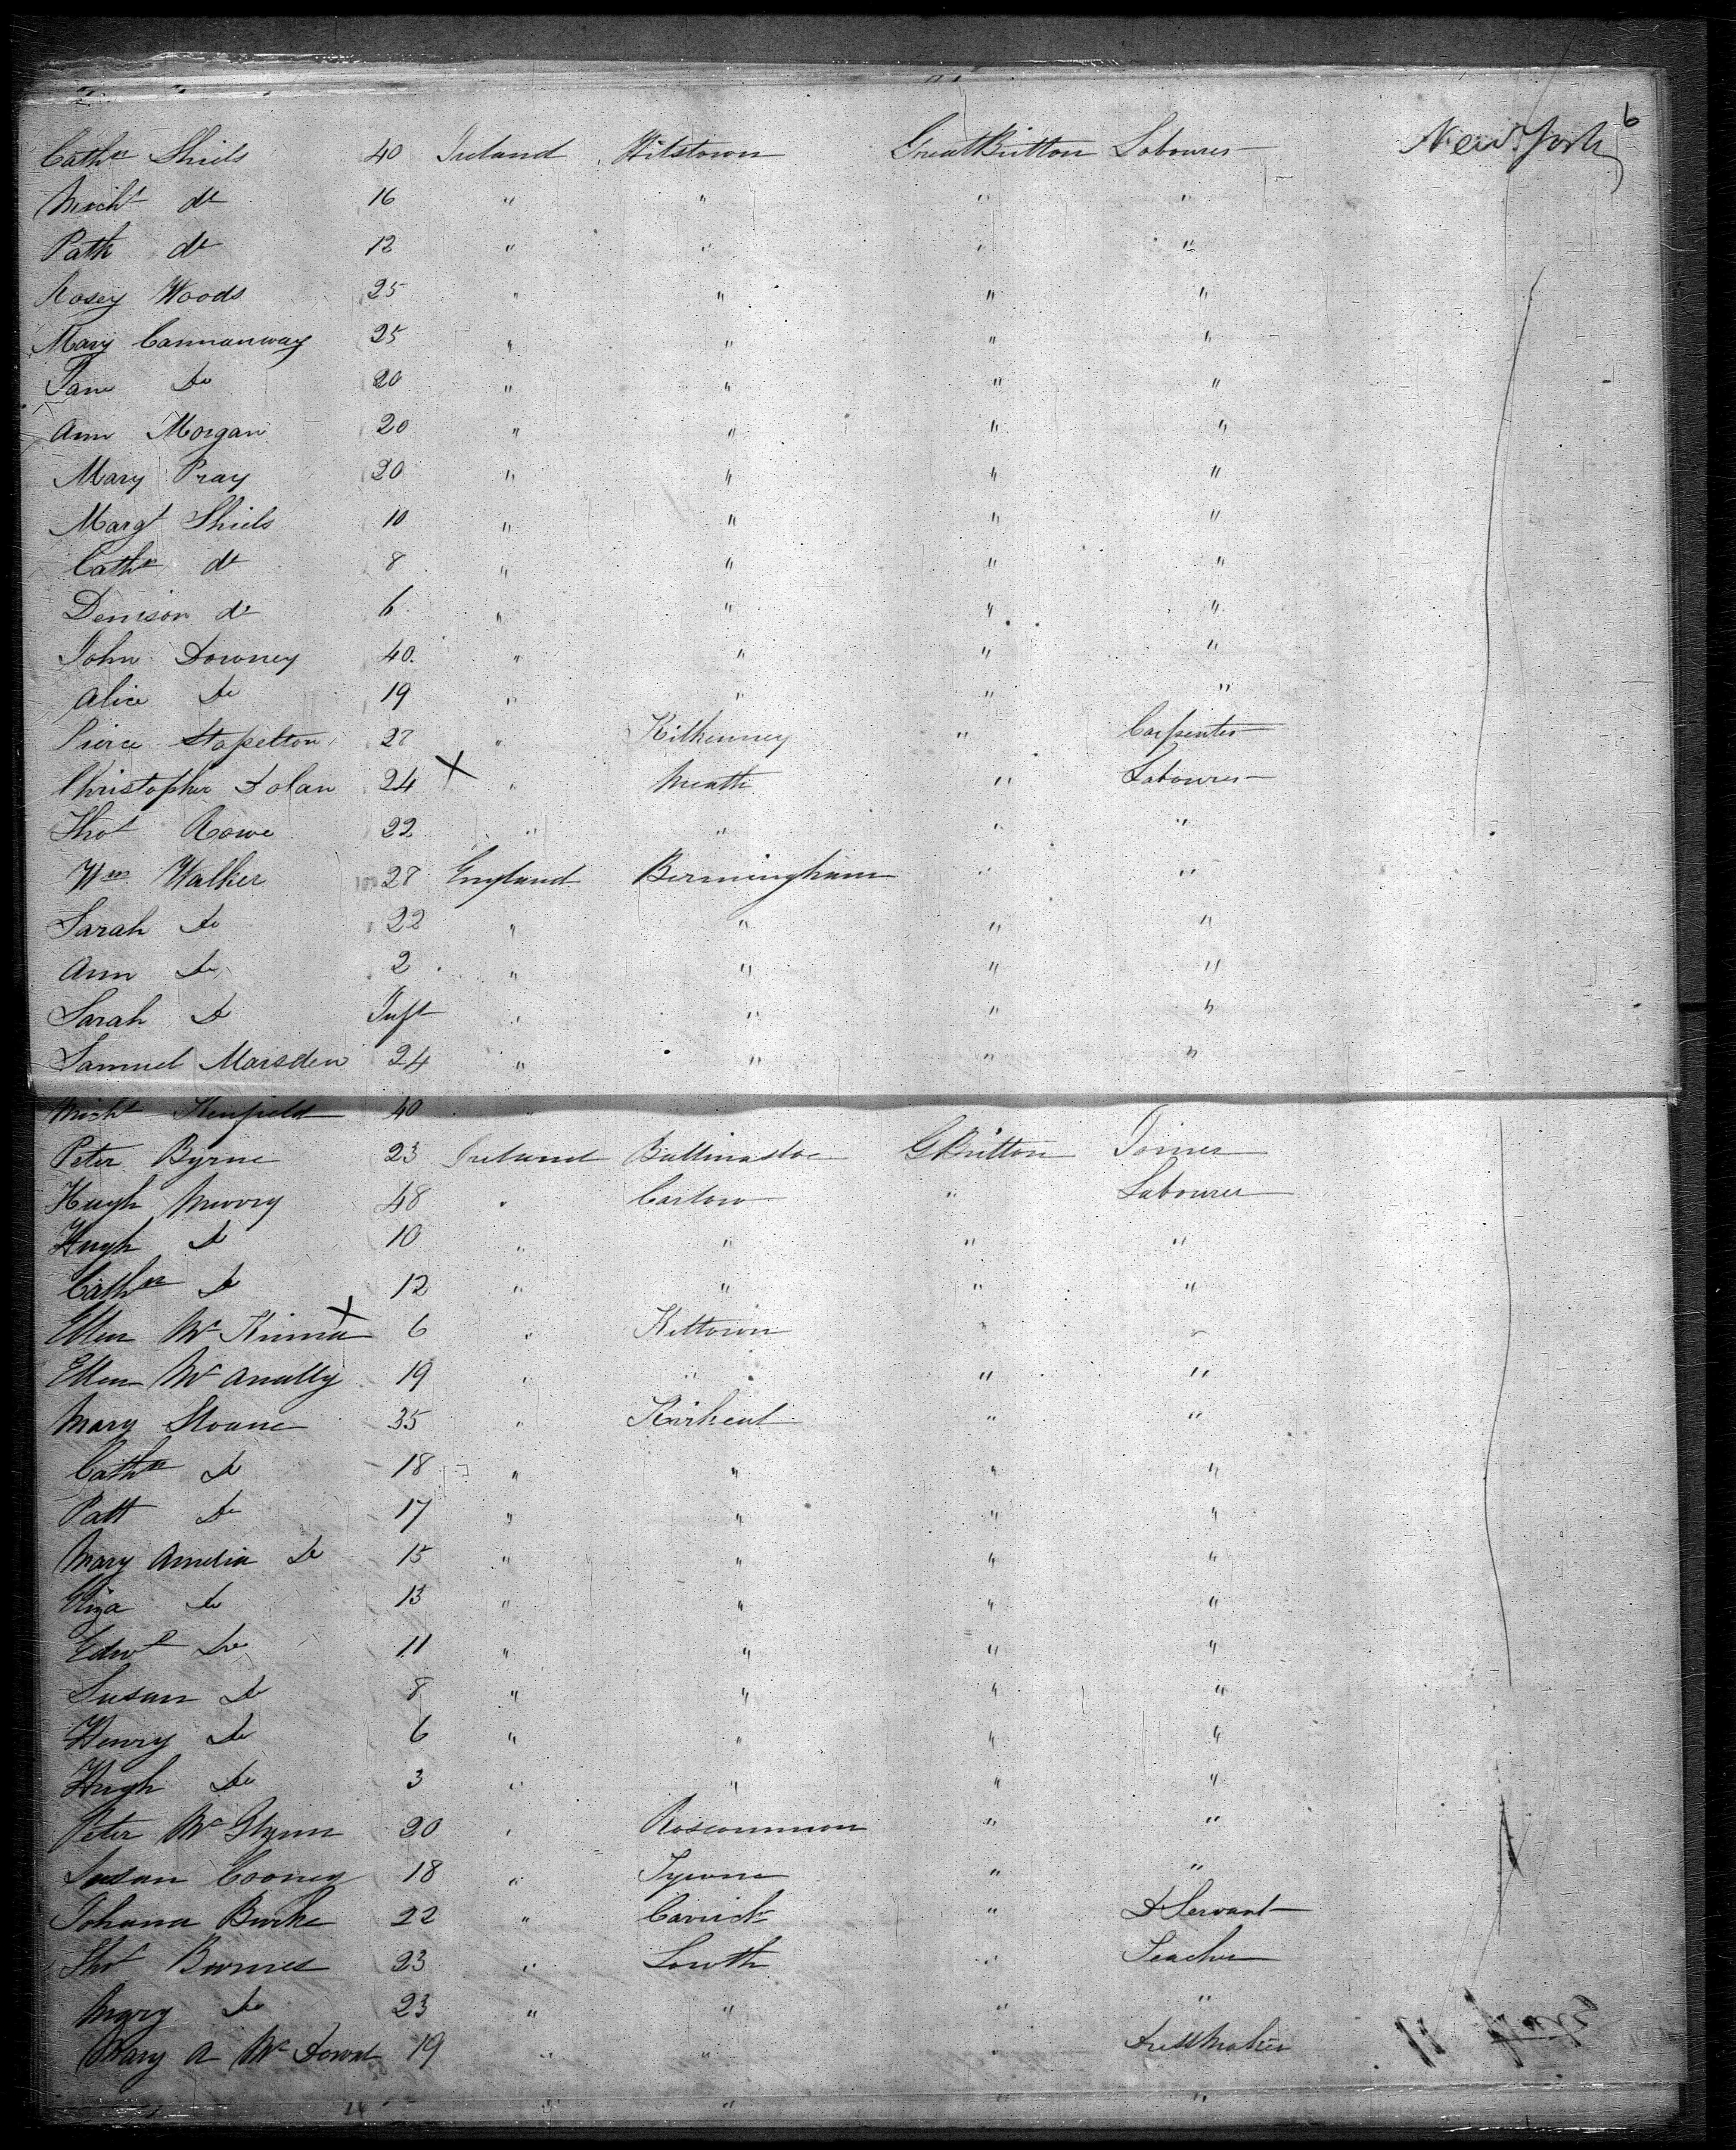 6
Cathe Shiels 40 Ireland Hilstown Great Britton Labourer New York
Michl do 16 " " " "
Patk do 12 " " " "
Rosey Woods 25 " " " "
Mary Cannanway 25 " " " "
Jane Do 20 " " " "
Ann Morgan 20 " " " "
Mary Pray 20 " " " "
Margt Shiels 10 " " " "
Cathe do 8 " " " "
Denison do 6 " " " "
John Downey 40 " " " "
Alice Do 19 " " " "
Pierce Stapelton 27 " Kilkenney " Carpenter
Christopher Dolan 24 X " Meath " Labourer
Thos Rowe 22 " " " "
Wm Walker 27 England Bermingham " "
Sarah Do 22 " " " "
Ann Do 2 " " " "
Sarah Do Inft " " " "
Samuel Marsden 24 " " " "
Michl 40
Peter Byrne 23 Ireland Ballinasloe G Britton Joiner
Hugh Murry 48 " Carlow " Labourer
Hugh Do 10 " " " "
Cathe Do 12 " " " "
Ellen Mc X 6 " Kiltown " "
Ellen Mc Anully 19 " " " "
Mary Sloane 35 " " "
Cathe Do 18 " " " "
Patt Do 17 " " " "
Mary Amelia Do 15 " " " "
Eliza Do 13 " " " "
Edwd Do 11 " " " "
Susan Do 8 " " " "
Henry Do 6 " " " "
Hugh Do 3 " " " "
Peter Mc Glynn 20 " Roscommon " "
Susan Cooney 18 " Tyrone " "
Johana Burke 22 " Carrick " D Servant
Thos 23 " Lowth " Teacher
Mary Do 23 " " " "
Mary A Mc Dowd 19 " " " Dressmaker
" " " "